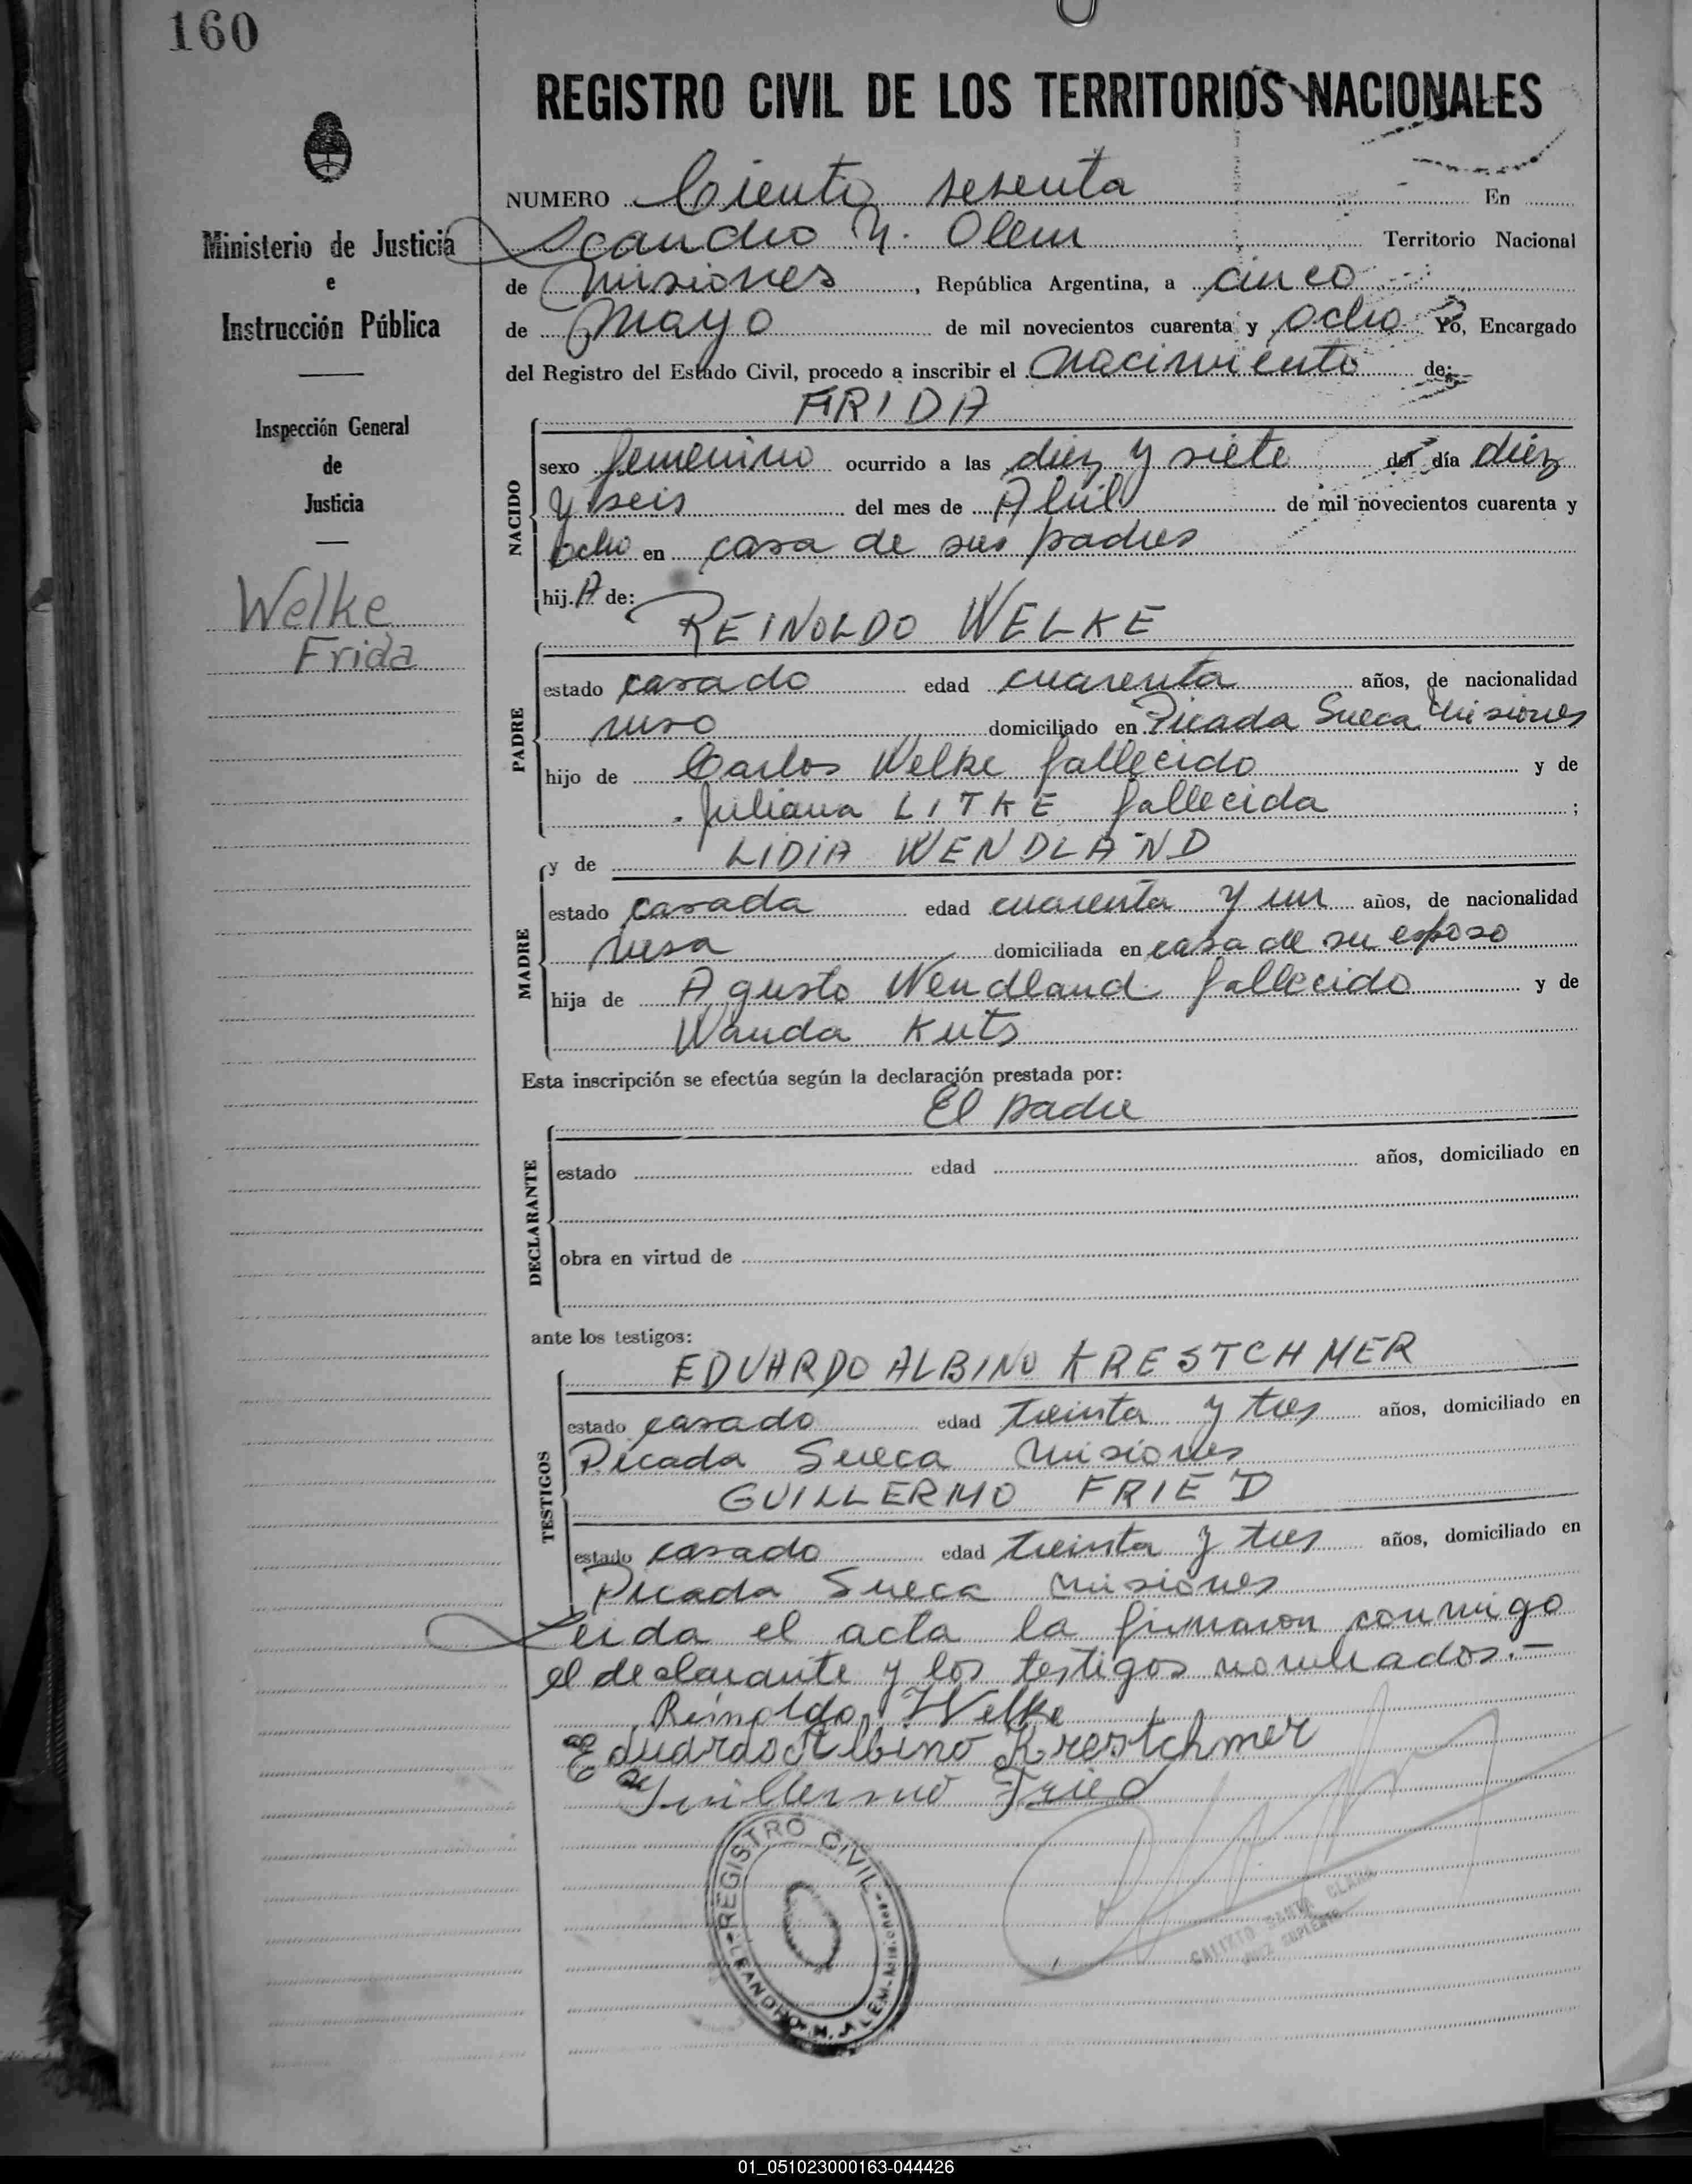 160
REGISTRO CIVIL DE LOS TERRITORIOS NACIONALES
NUMERO Ciento sesenta En
Leandro N. Alem Territorio Nacional
de Misiones, República Argentina, a cinco
de Mayo de mil novecientos cuarenta y ocho Yo, Encargado
del Registro del Estado Civil, procedo a inscribir el nacimiento de:
Ministerio de Justicia
e
Instrucción Pública
Inspección General
de
Justicia
Welke
Frida
NACIDO
FRIDA
sexo femenino ocurrido a las diez y siete del día diez
y seis del mes de Abril de mil novecientos cuarenta y
ocho en casa de sus padres
hij.A de:
PADRE
REINOLDO WELKE
estado casado edad cuarenta años, de nacionalidad
ruso domiciliado en Picada Sueca Misiones
hijo de Carlos Welke fallecido y de
Juliana LITKE fallecida ;
MADRE
y de LIDIA WENDLAND
estado casada edad cuarenta y un años, de nacionalidad
rusa domiciliada en casa de su esposo
hija de Agusto Wendland fallecido y de
Wanda Kuts
Esta inscripción se efectúa según la declaración prestada por:
El padre
DECLARANTE
estado edad años, domiciliado en
obra en virtud de
ante los testigos:
TESTIGOS
EDUARDO ALBINO KRESTCHMER
estado casado edad treinta y tres años, domiciliado en
Picada Sueca Misiones
GUILLERMO FRIED
estado casado edad treinta y tres años, domiciliado en
Picada Sueca Misiones
Leida el acta la firmaron conmigo
el declarante y los testigos nombrados.—
Reinoldo Welke
Eduardo Albino Krestchmer
Guillermo Fried
REGISTRO CIVIL
LEANDRO N. ALEM - Misiones
CALIXTO SANTA CLARA
JUEZ SUPLENTE
01_051023000163-044426